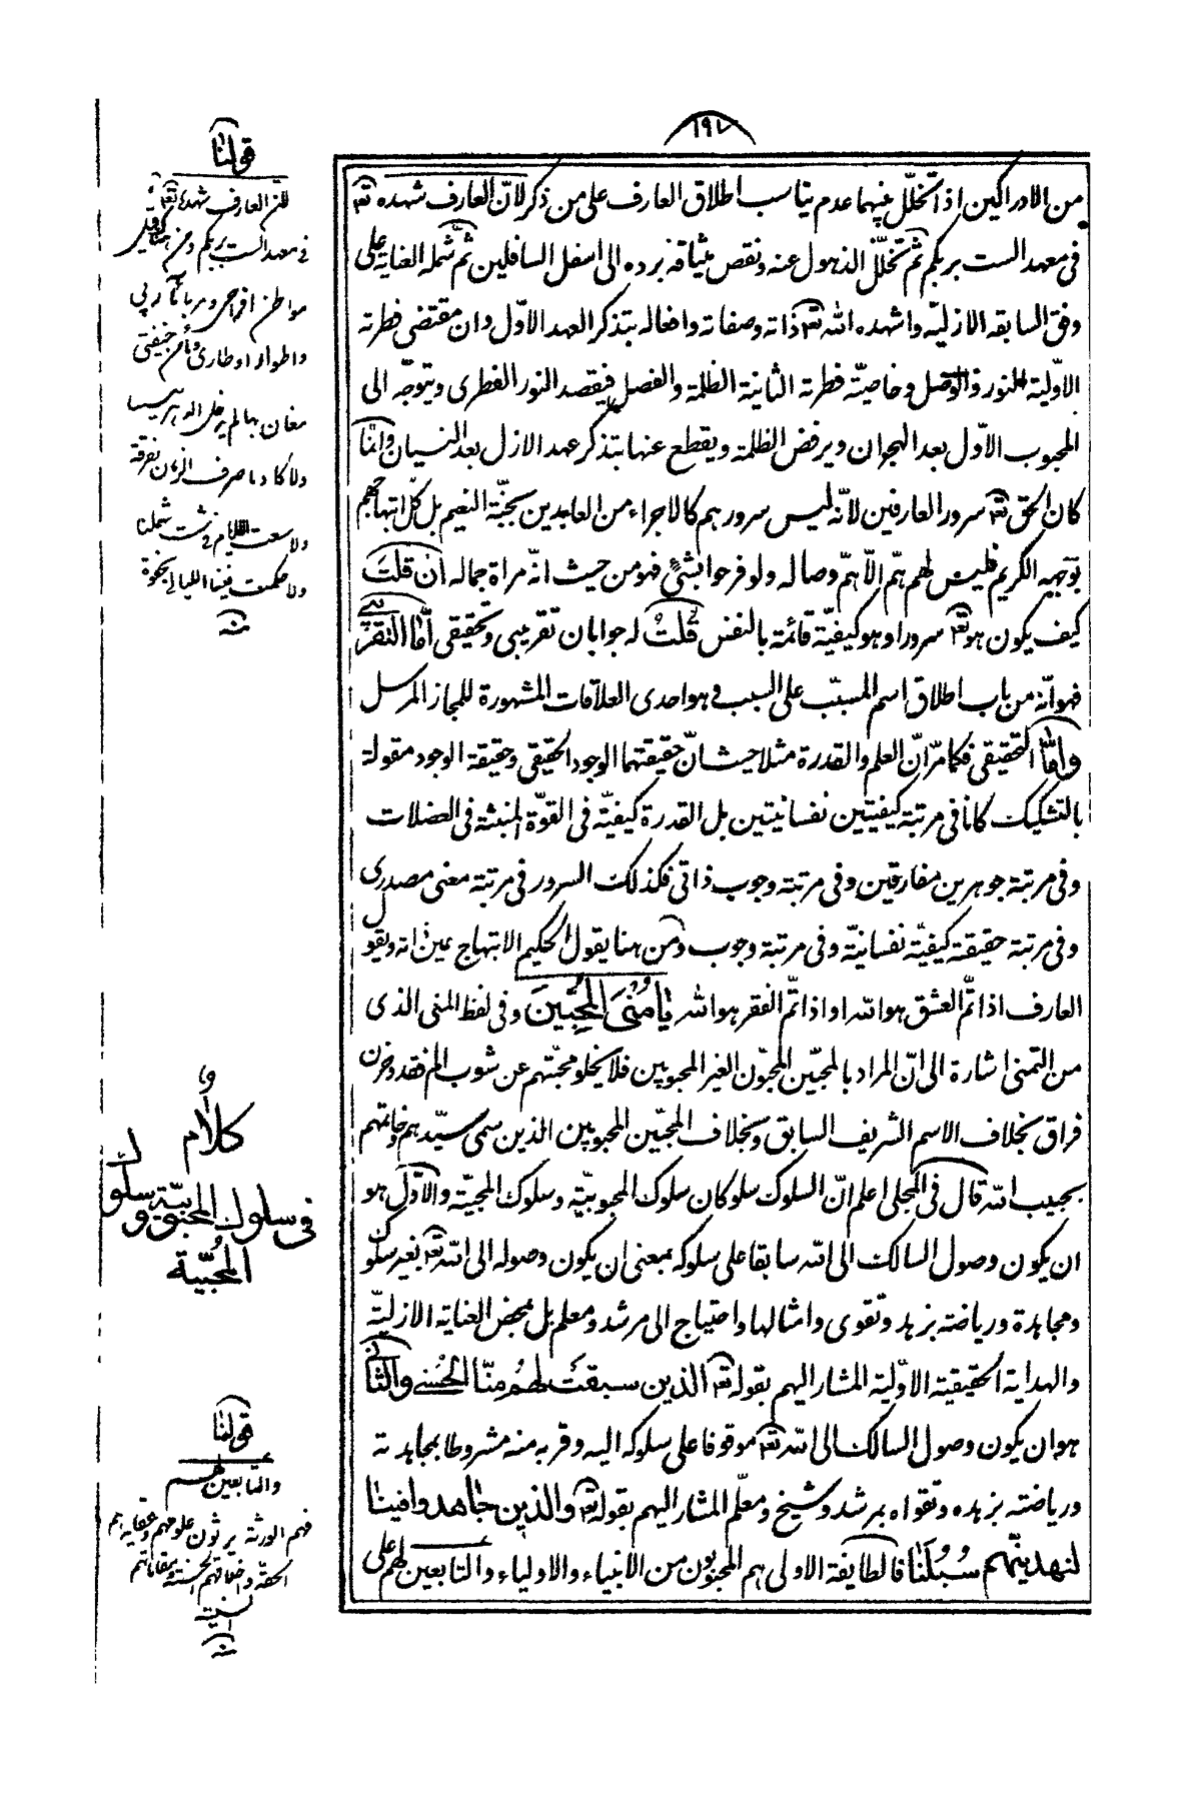 ١٩٧
من الادراكين اذا تخلّل بينهما عدم يناسب اطلاق العارف على من ذكر لانّ العارف شهده تع
فى معهد الست بربكم ثم تخلّل الذهول عنه ونقص ميثاقه برده الى اسفل السافلين ثم شمله العناية على
وفق السابقه الازليّه واشهده الله تع ذاته وصفاته وافعاله بتذكر العهد الاوّل وان مقتضى فطرته
الاوّلية النور والوصل وخاصيّة فطرته الثانية الظلمة والفصل فيقصد النور الفطرى ويتوجّه الى
المحبوب الاوّل بعد الهجران ويرفض الظلمة ويقطع عنها بتذكر عهد الازل بعد النسيان وانّما
كان الحق تع سرور العارفين لانّه ليس سرورهم كالاجراء من العابدين بجنّة النعيم بل كلّ ابتهاجهم
بوجهه الكريم فليس لهم همّ الّا همّ وصاله ولو فرحوا بشئ فهو من حيث انّه مرآة جماله ان قلت
كيف يكون هو تع سرورا وهو كيفيّة قائمة بالنفس قلت له جوابان تقريبى وتحقيقى امّا التقريبى
فهو انّه من باب اطلاق اسم المسبّب على السبب وهو احدى العلاقات المشهورة للمجاز المرسل
وامّا التحقيقى فكما مرّ انّ العلم والقدرة مثلا حيث انّ حقيقتهما الوجود الحقيقى وحقيقة الوجود مقولة
بالتشكيك كانا فى مرتبة كيفيّتين نفسانيتين بل القدرة كيفيّة فى القوّة المنبثة فى العضلات
وفى مرتبة جوهرين مفارقين وفى مرتبة وجوب ذاتى فكذلك السرور فى مرتبة معنى مصدرى
وفى مرتبة حقيقته كيفيّة نفسانيّة وفى مرتبة وجوب ومن هنا يقول الحكيم الابتهاج عين ذاته ويقول
العارف اذا تمّ العشق هو الله او اذا تمّ الفقر هو الله يَا مُنَى الْمُحِبّينَ وفى لفظ المنى الذى
من التمنى اشارة الى انّ المراد بالمحبّين المحبّون الغير المحبوبين فلا يخلو محبّتهم عن شوب الم فقد وحزن
فراق بخلاف الاسم الشريف السابق وبخلاف المحبّين المحبوبين الذين سمى سيّدهم وخاتمهم
بحبيب الله قال فى المجلى اعلم انّ السلوك سلوكان سلوك المحبوبيّة وسلوك المحبيّة والاوّل هو
ان يكون وصول السالك الى الله سابقا على سلوكه بمعنى ان يكون وصوله الى الله تع بغير سلوك
ومجاهدة ورياضته بزهد وتقوى وامثالها واحتياج الى مرشد ومعلم بل بمحض العناية الازليّة
والهداية الحقيقية الاوّلية المشار اليهم بقوله تع الذين سبقت لهم منّا الحُسنى والثانى
هو ان يكون وصول السالك الى الله تع موقوفا على سلوكه اليه وقربه منه مشروطا بمجاهدته
ورياضته بزهده وتقواه بمرشد وشيخ ومعلّم المشار اليهم بقوله تع والذين جاهدوا فينا
لنهدينّهم سُبُلَنا فالطايفة الاولى هم المحبوبون من الانبياء والاولياء والتابعين لهم على
قولنا
لانّ العارف شهده تع
فى معهد الست بربكم
مواطن افراحى ومربا مآربى
واطوار اوطارى ومأمن خيفتى
مغان بها لم يدخل الدهر بيننا
ولا كادنا صرف الزمان بفرقة
ولا سعت الايام فى شت شملنا
ولا حكمت فينا الليالى بجفوة
منه
كلام
فى سلوك المحبوبيّة وسلوك
المُحبّية
قولنا
والتابعين لهم
فهم الورثة يرثون علومهم وعقايدهم
الحقّة واخلاقهم الحسنة ومقاماتهم
السنيّة
منه